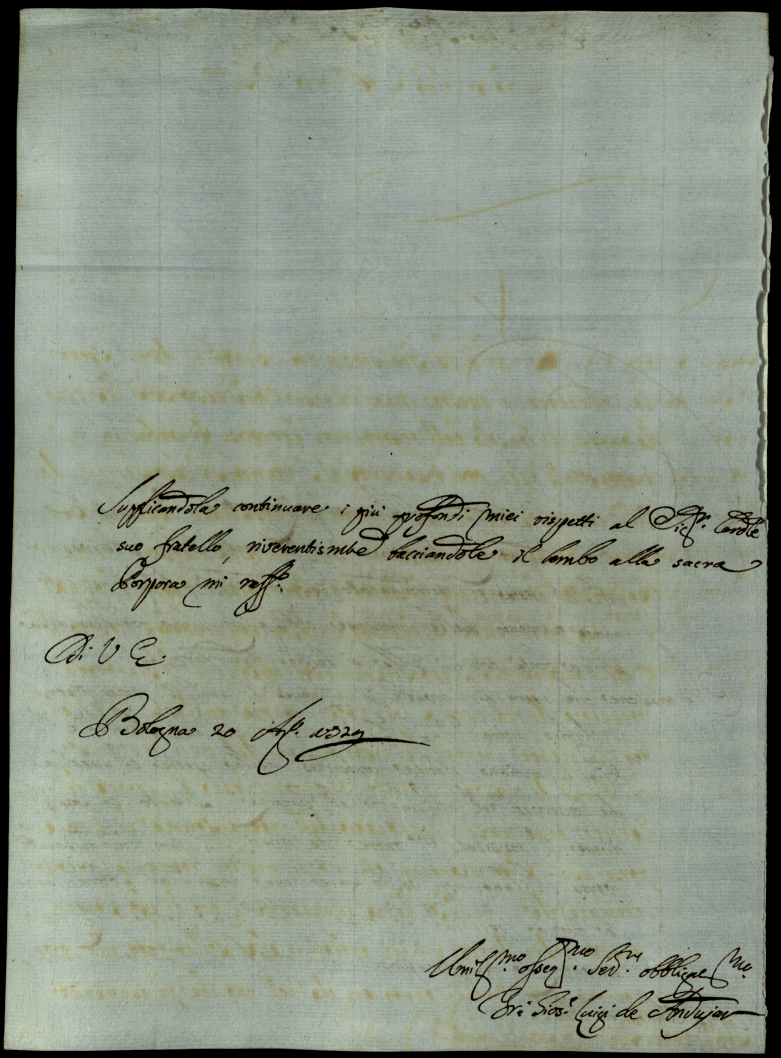 Supplicandola continuare i più profondi miei rispetti al Sig.r
suo fratello, riverentismte bacciandole il lembo alla sacra
Porpora mi raffo.
Di V E
Bologna 20 1729
Umilmo. osseqmo. Servre. obbligmo.
Fr: Gios: Luigi de Andujar